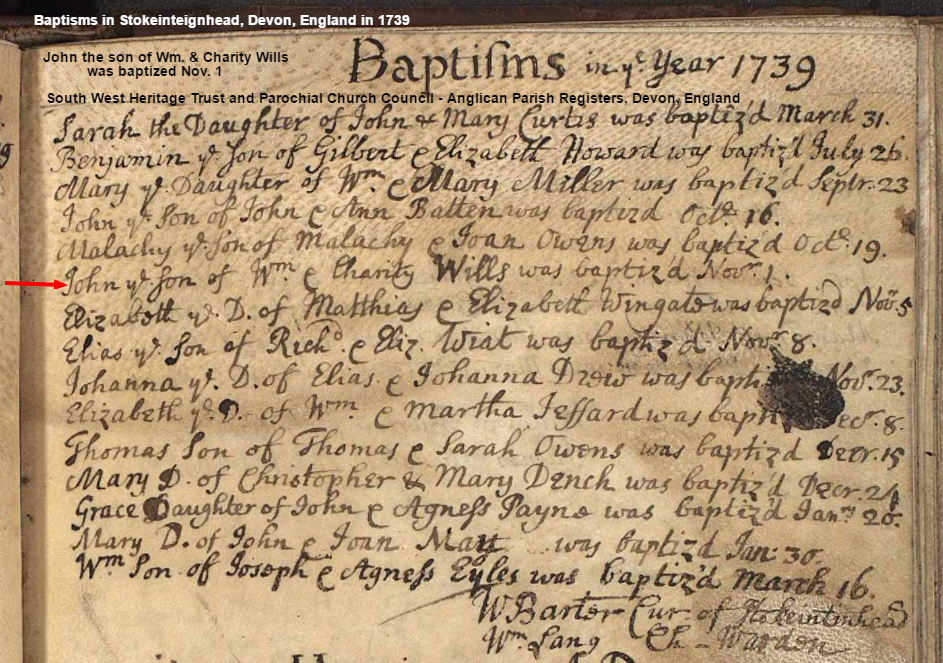 Baptisms in Stokeinteignhead, Devon, England in 1739
John the son of Wm. & Charity Wills
was baptized Nov. 1
Baptiſms in yᵉ Year 1739
South West Heritage Trust and Parochial Church Council - Anglican Parish Registers, Devon, England
Sarah the Daughter of John & Mary Curtis was baptiz'd March 31.
Benjamin yᵉ Son of Gilbert & Elizabeth Howard was baptiz'd July 26.
Mary yᵉ Daughter of Wᵐ & Mary Miller was baptiz'd Septr. 23
John yᵉ Son of John & Ann Batten was baptizd Octʳ 16.
Malachy yᵉ Son of Malachy & Joan Owens was baptiz'd Octʳ 19.
John yᵉ Son of Wᵐ & Charity Wills was baptiz'd Novʳ 1.
Elizabeth yᵉ D. of Matthias & Elizabeth Wingate was baptizd Novʳ 5
Elias yᵉ Son of Richᵈ & Eliz. Wiat was baptiz'd Novʳ 8.
Johanna yᵉ D. of Elias & Johanna Drew was bapti Novʳ 23.
Elizabeth yᵉ D. of Wᵐ & Martha Jeffard was bapt ecʳ 8.
Thomas Son of Thomas & Sarah Owens was baptizd Decr. 15
Mary D. of Christopher & Mary Dench was baptiz'd Decr. 24
Grace Daughter of John & Agneſs Payne was baptiz'd Janʳʸ 20.
Mary D. of John & Joan May was baptizd Jan: 30.
Wᵐ Son of Joseph & Agneſs Eyles was baptiz'd March 16.
W Barter Cur of Stokeintinhead
Wᵐ Lang Ch - Wardon